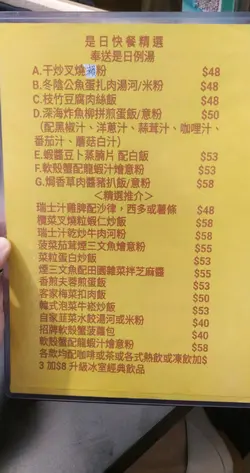 是日快餐精選
奉送是日例湯
A.干炒叉燒豬粉 $48
B.冬陰公魚蛋扎肉湯河/米粉 $48
C.枝竹豆腐肉絲飯 $48
D.深海炸魚柳拼煎蛋飯/意粉 $50
(配黑椒汁、洋蔥汁、蒜茸汁、咖哩汁、
番茄汁、蘑菇白汁)
E.蝦醬豆卜蒸腩片 配白飯 $53
F.軟殼蟹配龍蝦汁燴意粉 $53
G.焗香草肉醬豬扒飯/意粉 $58
<精選推介>
瑞士汁雞脾配沙律,西多或薯條 $48
欖菜叉燒粒蝦仁炒飯 $58
瑞士汁乾炒牛肉河粉 $58
菠菜茄茸煙三文魚燴意粉 $55
菜粒蛋白炒飯 $53
煙三文魚配田園雜菜拌芝麻醬 $55
香煎夫蓉煎蛋飯 $53
客家梅菜扣肉飯 $50
韓式泡菜牛崧炒飯 $53
自家韮菜水餃湯河或米粉 $40
招牌軟殼蟹菠蘿包 $40
軟殼蟹配龍蝦汁燴意粉 $58
各款均配咖啡或茶或各式熱飲或凍飲加$
3 加$8 升級冰室經典飲品